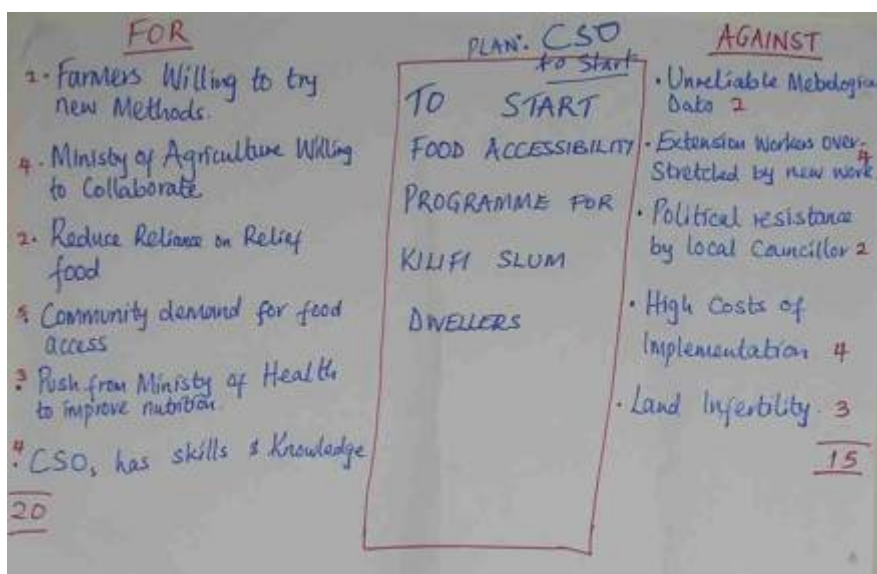 FOR
2. Farmers Willing to try
new Methods.
4. Ministry of Agriculture Willing
to Collaborate
2. Reduce Reliance on Relief
food
5. Community demand for food
access
3. Push from Ministry of Health
to improve nutrition.
4. CSO, has skills & Knowledge
20
PLAN: CSO
to Start
TO START
FOOD ACCESSIBILITY
PROGRAMME FOR
KILIFI SLUM
DWELLERS
AGAINST
• Unreliable
Data 2
• Extension Workers over-
Stretched by new work 4
• Political resistance
by local Councillor 2
• High Costs of
Implementation 4
• Land Infertility 3
15